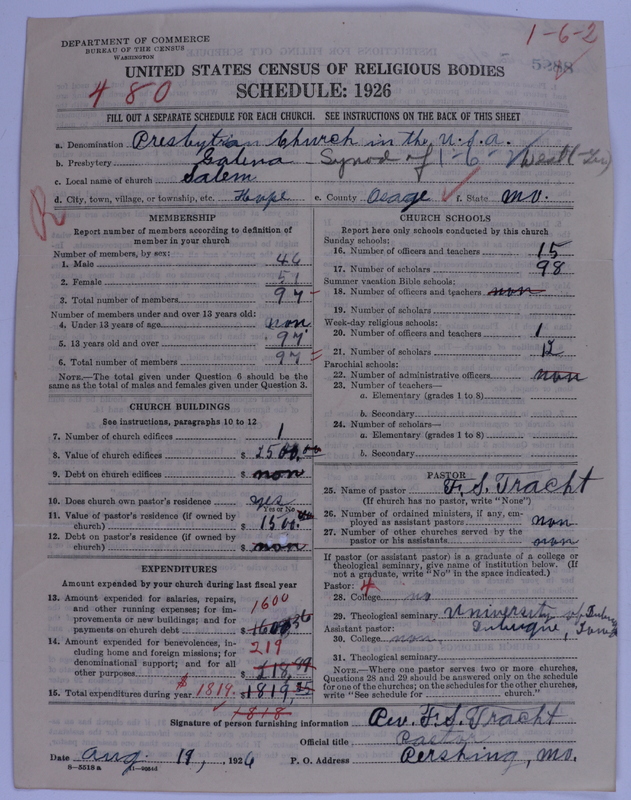 DEPARTMENT OF COMMERCE
BUREAU OF THE CENSUS
WASHINGTON
1-6-2
5288
UNITED STATES CENSUS OF RELIGIOUS BODIES
480
SCHEDULE: 1926
FILL OUT A SEPARATE SCHEDULE FOR EACH CHURCH. SEE INSTRUCTIONS ON THE BACK OF THIS SHEET
a. Denomination Presbytrian Church in the U.S.A.
b. Presbytery Galena Synod of 1-6-
c. Local name of church Salem
d. City, town, village, or township, etc. Hope e. County Osage f. State Mo.
R
MEMBERSHIP
Report number of members according to definition of
member in your church
Number of members, by sex:
1. Male 46
2. Female 51
3. Total number of members 97
Number of members under and over 13 years old:
4. Under 13 years of age non
5. 13 years old and over 97
6. Total number of members 97
NOTE.—The total given under Question 6 should be
same as the total of males and females given under Question 3.
CHURCH BUILDINGS
See instructions, paragraphs 10 to 12
7. Number of church edifices 1
8. Value of church edifices $ 2500.00
9. Debt on church edifices $ non
10. Does church own pastor's residence yes
Yes or No
11. Value of pastor's residence (if owned by
church) $ 1500.00
12. Debt on pastor's residence (if owned by
church) $ non
EXPENDITURES
Amount expended by your church during last fiscal year
13. Amount expended for salaries, repairs,
and other running expenses; for im-
provements or new buildings; and for
payments on church debt $ 1600
14. Amount expended for benevolences, in-
cluding home and foreign missions; for
denominational support; and for all
other purposes $ 219 218
15. Total expenditures during year $1819. $ 1819
1818
CHURCH SCHOOLS
Report here only schools conducted by this church
Sunday schools:
16. Number of officers and teachers 15
17. Number of scholars 98
Summer vacation Bible schools:
18. Number of officers and teachers non
19. Number of scholars
Week-day religious schools:
20. Number of officers and teachers 1
21. Number of scholars 12
Parochial schools:
22. Number of administrative officers non
23. Number of teachers—
a. Elementary (grades 1 to 8)
b. Secondary
24. Number of scholars—
a. Elementary (grades 1 to 8)
b. Secondary
PASTOR
25. Name of pastor F. S. Tracht
(If church has no pastor, write "None")
26. Number of ordained ministers, if any, em-
ployed as assistant pastors non
27. Number of other churches served by the
pastor or his assistants non
If pastor (or assistant pastor) is a graduate of a college or
theological seminary, give name of institution below. (If
not a graduate, write "No" in the space indicated.)
Pastor: 4
28. College no
29. Theological seminary University of Dubuque
Assistant pastor: Dubuque, Iowa
30. College non
31. Theological seminary
NOTE.—Where one pastor serves two or more churches,
Questions 28 and 29 should be answered only on the schedule
for one of the churches; on the schedules for the other churches,
write "See schedule for church."
Signature of person furnishing information Rev. F. S. Tracht
Official title Pastor
Date Aug. 19, 1926 P. O. Address Pershing, Mo.
8—5518 a